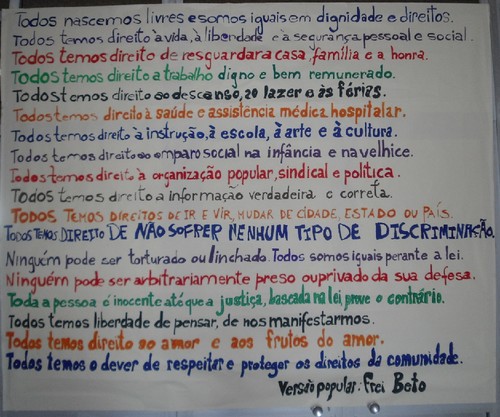 Todos nascemos livres e somos iguais em dignidade e direitos.
Todos temos direito à vida, à liberdade e à segurança pessoal e social.
Todos temos direito de resguardar a casa, família e a honra.
Todos temos direito a trabalho digno e bem remunerado.
Todos temos direito ao descanso, ao lazer e às férias.
Todos temos direito à saúde e assistência médica hospitalar.
Todos temos direito à instrução, à escola, à arte e à cultura.
Todos temos direito ao amparo social na infância e na velhice.
Todos temos direito à organização popular, sindical e política.
Todos temos direito a informação verdadeira e correta.
TODOS TEMOS DIREITOS DE IR E VIR, MUDAR DE CIDADE, ESTADO OU PAÍS.
TODOS TEMOS DIREITO DE NÃO SOFRER NENHUM TIPO DE DISCRIMINAÇÃO.
Ninguém pode ser torturado ou linchado. Todos somos iguais perante a lei.
Ninguém pode ser arbitrariamente preso ou privado da sua defesa.
Toda a pessoa é inocente até que a justiça, baseada na lei, prove o contrário.
Todos temos liberdade de pensar, de nos manifestarmos.
Todos temos direito ao amor e aos frutos do amor.
Todos temos o dever de respeitar e proteger os direitos da comunidade.
Versão popular: Frei Beto